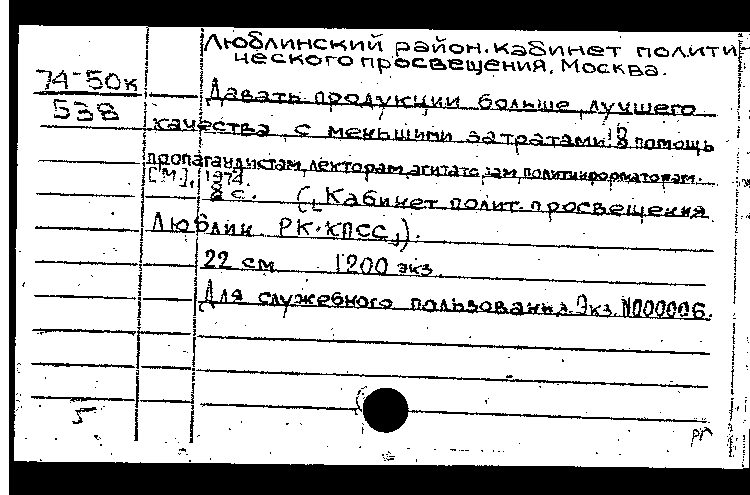 Люблинский район. Кабинет полити-
ческого просвещения, Москва.
74-50к
538
Давать продукции больше, лучшего
качества, с меньшими затратами! В помощь
пропагандистам, лекторам, агитаторам, политинформаторам.
[М], 1974.
8 с. ([Кабинет полит. просвещения
Люблин. РК КПСС]).
22 см 1200 экз.
Для служебного пользования. Экз. N000006.